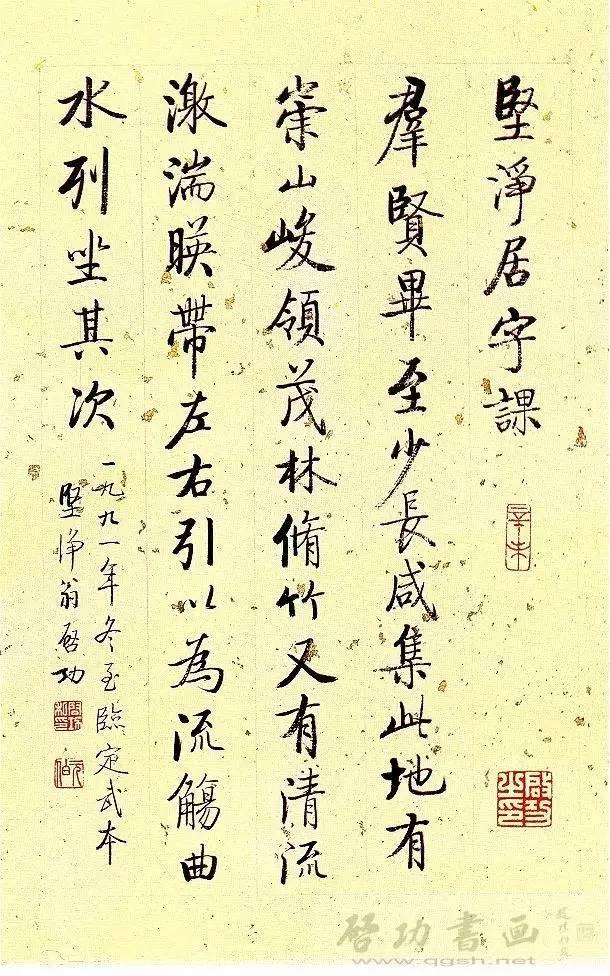 堅淨居字課
羣賢畢至少長咸集此地有
崇山峻領茂林脩竹又有清流
激湍暎帶左右引以為流觴曲
水列坐其次
一九九一年冬至臨定武本
堅淨翁啓功
辛未
啓功之印
啓功書画
www.qgsh.net